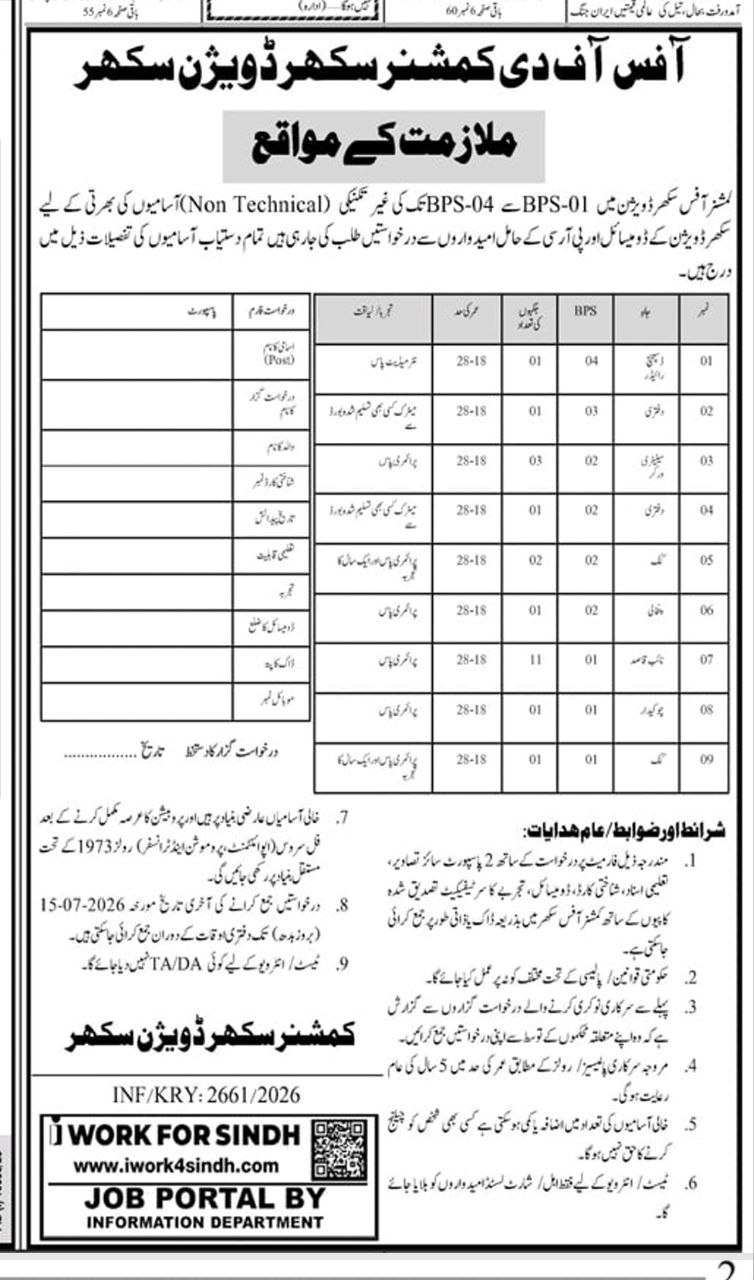 باقی صفحہ 6 نمبر 55
نہیں ہوگا۔ (ادارہ)
باقی صفحہ 6 نمبر 60
آمد و رفت بحال، تیل کی عالمی قیمتیں ایران جنگ
آفس آف دی کمشنر سکھر ڈویژن سکھر
ملازمت کے مواقع
کمشنر آفس سکھر ڈویژن میں BPS-01 سے BPS-04 تک کی غیر تکنیکی (Non Technical) آسامیوں کی بھرتی کے لیے
سکھر ڈویژن کے ڈومیسائل اور پی آر سی کے حامل امیدواروں سے درخواستیں طلب کی جارہی ہیں تمام دستیاب آسامیوں کی تفصیلات ذیل میں
درج ہیں۔
نمبر جاب BPS جگہوں کی تعداد عمر کی حد تجربہ/لیاقت
01 ڈسپیچ رائیڈر 04 01 28-18 انٹرمیڈیٹ پاس
02 دفتری 03 01 28-18 میٹرک کسی بھی تسلیم شدہ بورڈ سے
03 سینیٹری ورکر 02 03 28-18 پرائمری پاس
04 دفتری 02 01 28-18 میٹرک کسی بھی تسلیم شدہ بورڈ سے
05 کک 02 02 28-18 پرائمری پاس اور ایک سال کا تجربہ
06 02 01 28-18 پرائمری پاس
07 نائب قاصد 01 11 28-18 پرائمری پاس
08 چوکیدار 01 01 28-18 پرائمری پاس
09 کک 01 01 28-18 پرائمری پاس اور ایک سال کا تجربہ
درخواست فارم پاسپورٹ
اسامی کا نام (Post)
درخواست گزار کا نام
والد کا نام
شناختی کارڈ نمبر
تاریخ پیدائش
تعلیمی قابلیت
تجربہ
ڈومیسائل کا ضلع
ڈاک کا پتہ
موبائل نمبر
درخواست گزار کا دستخط تاریخ .................
شرائط اور ضوابط/عام ھدایات:
1. مندرجہ ذیل فارمیٹ پر درخواست کے ساتھ 2 پاسپورٹ سائز تصاویر،
تعلیمی اسناد، شناختی کارڈ، ڈومیسائل، تجربے کا سرٹیفکیٹ تصدیق شدہ
کاپیوں کے ساتھ کمشنر آفس سکھر میں بذریعہ ڈاک یا ذاتی طور پر جمع کرائی
جاسکتی ہے۔
2. حکومتی قوانین/پالیسی کے تحت مختلف کوٹہ پر عمل کیا جائے گا۔
3. پہلے سے سرکاری نوکری کرنے والے درخواست گزاروں سے گزارش
ہے کہ وہ اپنے متعلقہ محکموں کے توسط سے اپنی درخواستیں جمع کرائیں۔
4. مروجہ سرکاری پالیسیز/رولز کے مطابق عمر کی حد میں 5 سال کی عام
رعایت ہوگی۔
5. خالی آسامیوں کی تعداد میں اضافہ یا کمی ہوسکتی ہے کسی بھی شخص کو چیلنج
کرنے کا حق نہیں ہوگا۔
6. ٹیسٹ/انٹرویو کے لیے فقط اہل/شارٹ لسٹڈ امیدواروں کو بلایا جائے
گا۔
7. خالی آسامیاں عارضی بنیاد پر ہیں اور پروبیشن کا عرصہ مکمل کرنے کے بعد
سروس (اپوائنٹمنٹ، پروموشن اینڈ ٹرانسفر) رولز 1973 کے تحت
مستقل بنیاد پر رکھی جائیں گی۔
8. درخواستیں جمع کرانے کی آخری تاریخ مورخہ 15-07-2026
(بروز بدھ) تک دفتری اوقات کے دوران جمع کرائی جاسکتی ہیں۔
9. ٹیسٹ/انٹرویو کے لیے کوئی TA/DA نہیں دیا جائے گا۔
کمشنر سکھر ڈویژن سکھر
INF/KRY: 2661/2026
i WORK FOR SINDH
www.iwork4sindh.com
JOB PORTAL BY
INFORMATION DEPARTMENT
2